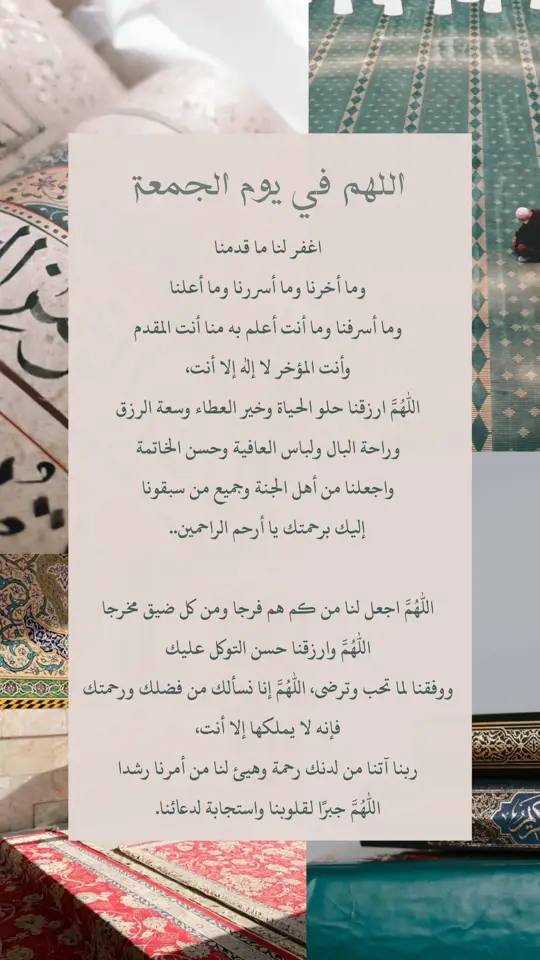 اللهم في يوم الجمعة
اغفر لنا ما قدمنا
وما أخرنا وما أسررنا وما أعلنا
وما أسرفنا وما أنت أعلم به منا أنت المقدم
وأنت المؤخر لا إله إلا أنت،
اللَّهُمَّ ارزقنا حلو الحياة وخير العطاء وسعة الرزق
وراحة البال ولباس العافية وحسن الخاتمة
واجعلنا من أهل الجنة وجميع من سبقونا
إليك برحمتك يا أرحم الراحمين..
اللَّهُمَّ اجعل لنا من كم هم فرجا ومن كل ضيق مخرجا
اللَّهُمَّ وارزقنا حسن التوكل عليك
ووفقنا لما تحب وترضى، اللَّهُمَّ إنا نسألك من فضلك ورحمتك
فإنه لا يملكها إلا أنت،
ربنا آتنا من لدنك رحمة وهيئ لنا من أمرنا رشدا
اللَّهُمَّ جبرًا لقلوبنا واستجابة لدعائنا.